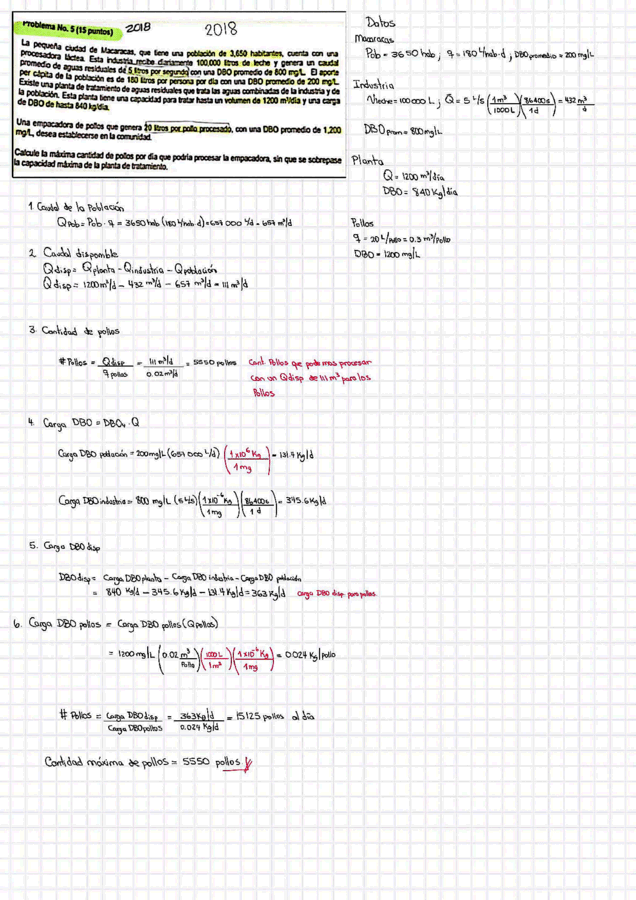 Problema No. 5 (15 puntos) 2018 2018
La pequeña ciudad de Macaracas, que tiene una población de 3,650 habitantes, cuenta con una
procesadora láctea. Esta industria recibe diariamente 100,000 litros de leche y genera un caudal
promedio de aguas residuales de 5 litros por segundo con una DBO promedio de 800 mg/L. El aporte
per cápita de la población es de 180 litros por persona por día con una DBO promedio de 200 mg/L.
Existe una planta de tratamiento de aguas residuales que trata las aguas combinadas de la industria y de
la población. Esta planta tiene una capacidad para tratar hasta un volumen de 1200 m³/día y una carga
de DBO de hasta 840 kg/día.
Una empacadora de pollos que genera 20 litros por pollo procesado, con una DBO promedio de 1,200
mg/L, desea establecerse en la comunidad.
Calcule la máxima cantidad de pollos por día que podría procesar la empacadora, sin que se sobrepase
la capacidad máxima de la planta de tratamiento.
Datos
Macaracas
Pob = 3650 hab ; q = 180 L/hab·d ; DBO promedio = 200 mg/L
Industria
Vleche = 100 000 L ; Q = 5 L/s (1m³/1000L)(86400s/1d) = 432 m³/d
DBOprom = 800 mg/L
Planta
Q = 1200 m³/día
DBO = 840 Kg/día
Pollos
q = 20 L/pollo = 0.3 m³/Pollo
DBO = 1200 mg/L
1. Caudal de la Población
QPob = Pob · q = 3650 hab (180 L/hab·d) = 657 000 L/d = 657 m³/d
2. Caudal disponible
Qdisp = Qplanta - Qindustria - Qpoblación
Qdisp = 1200 m³/d - 432 m³/d - 657 m³/d = 111 m³/d
3. Cantidad de pollos
# Pollos = Qdisp/q pollos = 111 m³/d / 0.02 m³/d = 5550 pollos Cant. Pollos que podemos procesar
con un Qdisp de 111 m³ para los
Pollos
4. Carga DBO = DBOu · Q
Carga DBO población = 200 mg/L (657 000 L/d) (1x10⁻⁶ Kg/1 mg) = 131.4 Kg/d
Carga DBO industria = 800 mg/L (5 L/s) (1x10⁻⁶ Kg/1mg)(86400s/1 d) = 345.6 Kg/d
5. Carga DBO disp
DBO disp = Carga DBO planta - Carga DBO industria - Carga DBO población
= 840 Kg/d - 345.6 Kg/d - 131.4 Kg/d = 363 Kg/d carga DBO disp. para pollos
6. Carga DBO pollos = Carga DBO pollos (Q pollos)
= 1200 mg/L (0.02 m³/Pollo)(1000L/1 m³)(1x10⁻⁶ Kg/1mg) = 0.024 Kg/pollo
# Pollos = Carga DBO disp/Carga DBO pollos = 363 Kg/d / 0.024 Kg/d = 15125 pollos al día
Cantidad máxima de pollos = 5550 pollos